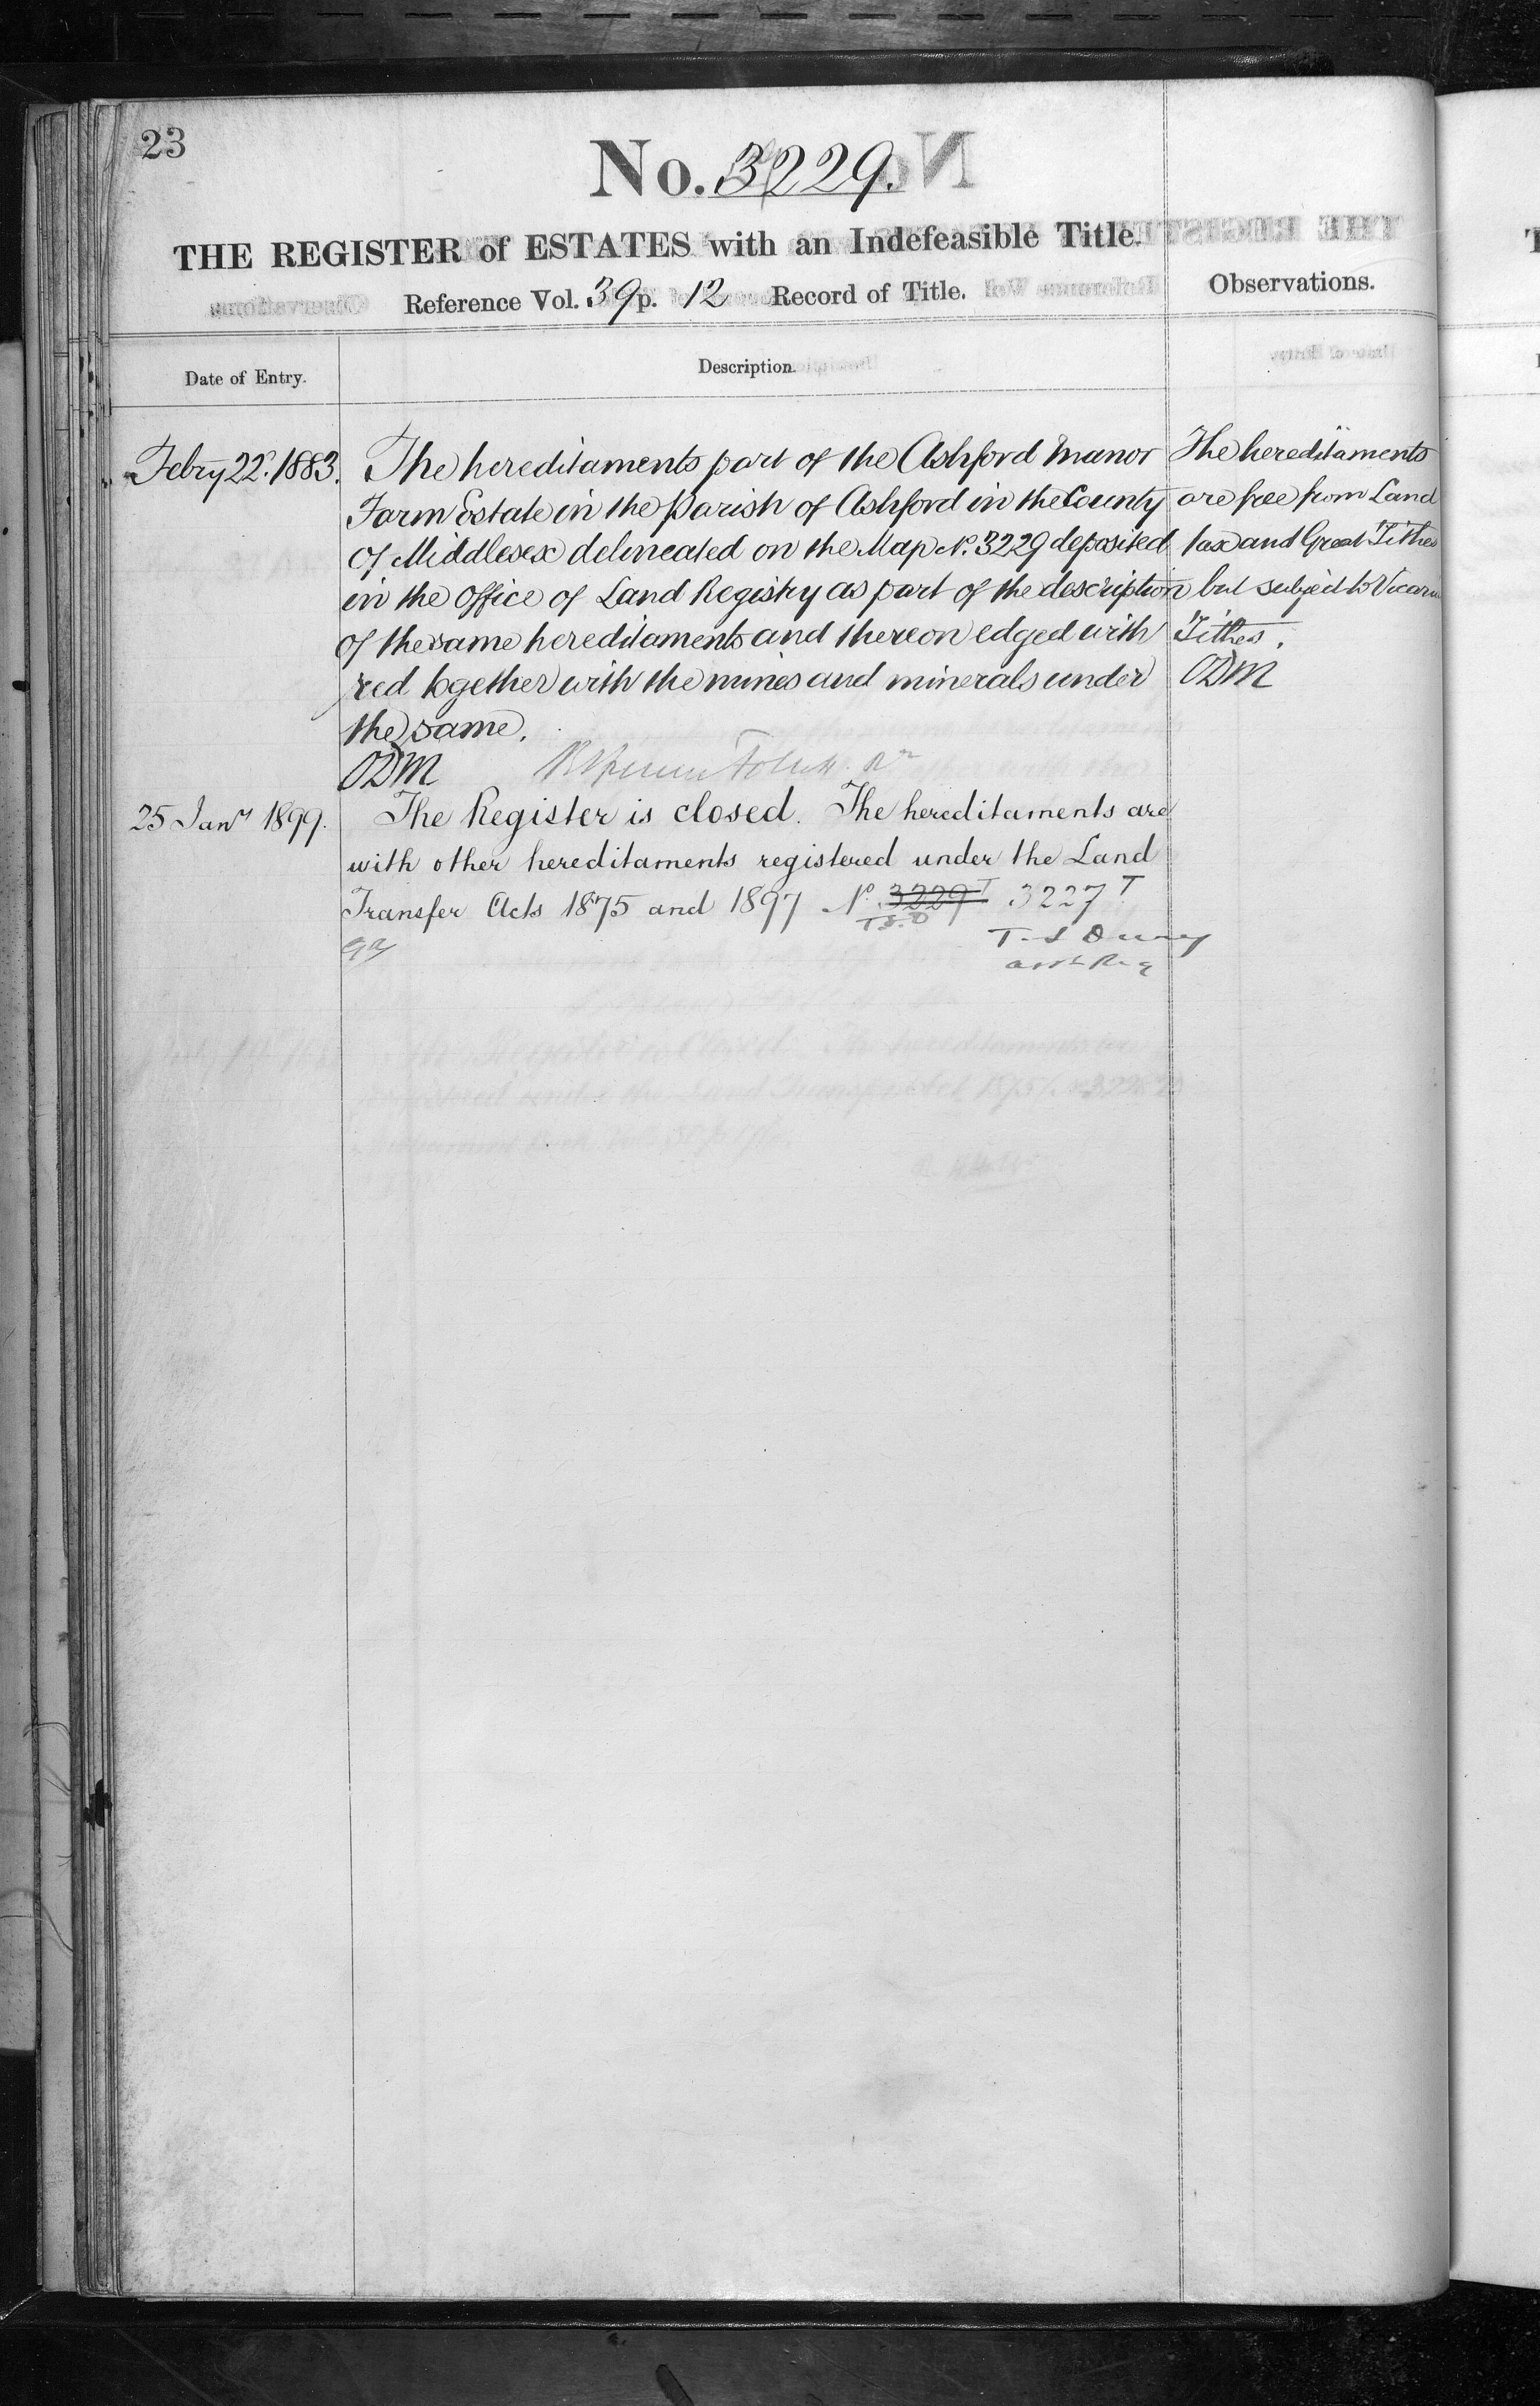 23
No. 3229.
THE REGISTER of ESTATES with an Indefeasible Title.
Reference Vol. 39 p. 12 Record of Title.
Observations.
Date of Entry.
Description.
Febry 22d. 1883.
The hereditaments part of the Ashford Manor
Farm Estate in the Parish of Ashford in the County
of Middlesex delineated on the Map No. 3229 deposited
in the Office of Land Registry as part of the description
of the same hereditaments and thereon edged with
red together with the mines and minerals under
the same.
ODM
The hereditaments
are free from Land
tax and Great Tithes
but subject to
Tithes.
ODM
25 Jany 1899.
The Register is closed. The hereditaments are
with other hereditaments registered under the Land
Transfer Acts 1875 and 1897 No 3229 T 3227 T
T.S.D
T. S
asst Reg